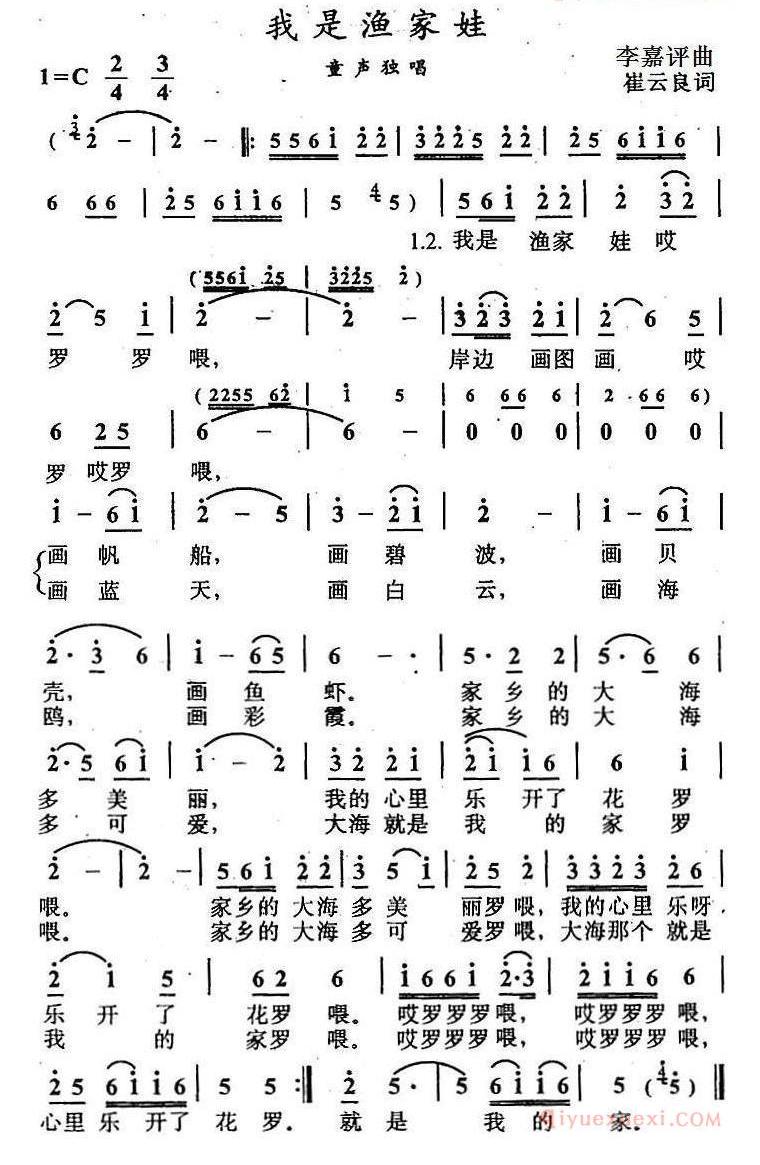 我是渔家娃
1=C 2/4 3/4
童声独唱
李嘉评曲
崔云良词
1.2. 我是 渔家 娃哎
罗 罗 喂, 岸边 画图 画 哎
罗 哎罗 喂,
画帆 船, 画碧 波, 画贝
画蓝 天, 画白 云, 画海
壳, 画鱼 虾。 家乡的大海
鸥, 画彩 霞。 家乡的大海
多美 丽, 我的心里 乐开了花罗
多可 爱, 大海就是 我的家罗
喂。 家乡的大海多美 丽罗喂,我的心里乐呀
喂。 家乡的大海多可 爱罗喂,大海那个就是
乐开了 花罗喂。哎罗罗罗喂, 哎罗罗罗喂,
我的 家罗喂。哎罗罗罗喂, 哎罗罗罗喂,
心里乐 开了花罗。就是 我的家。
qiyuexuexi.com